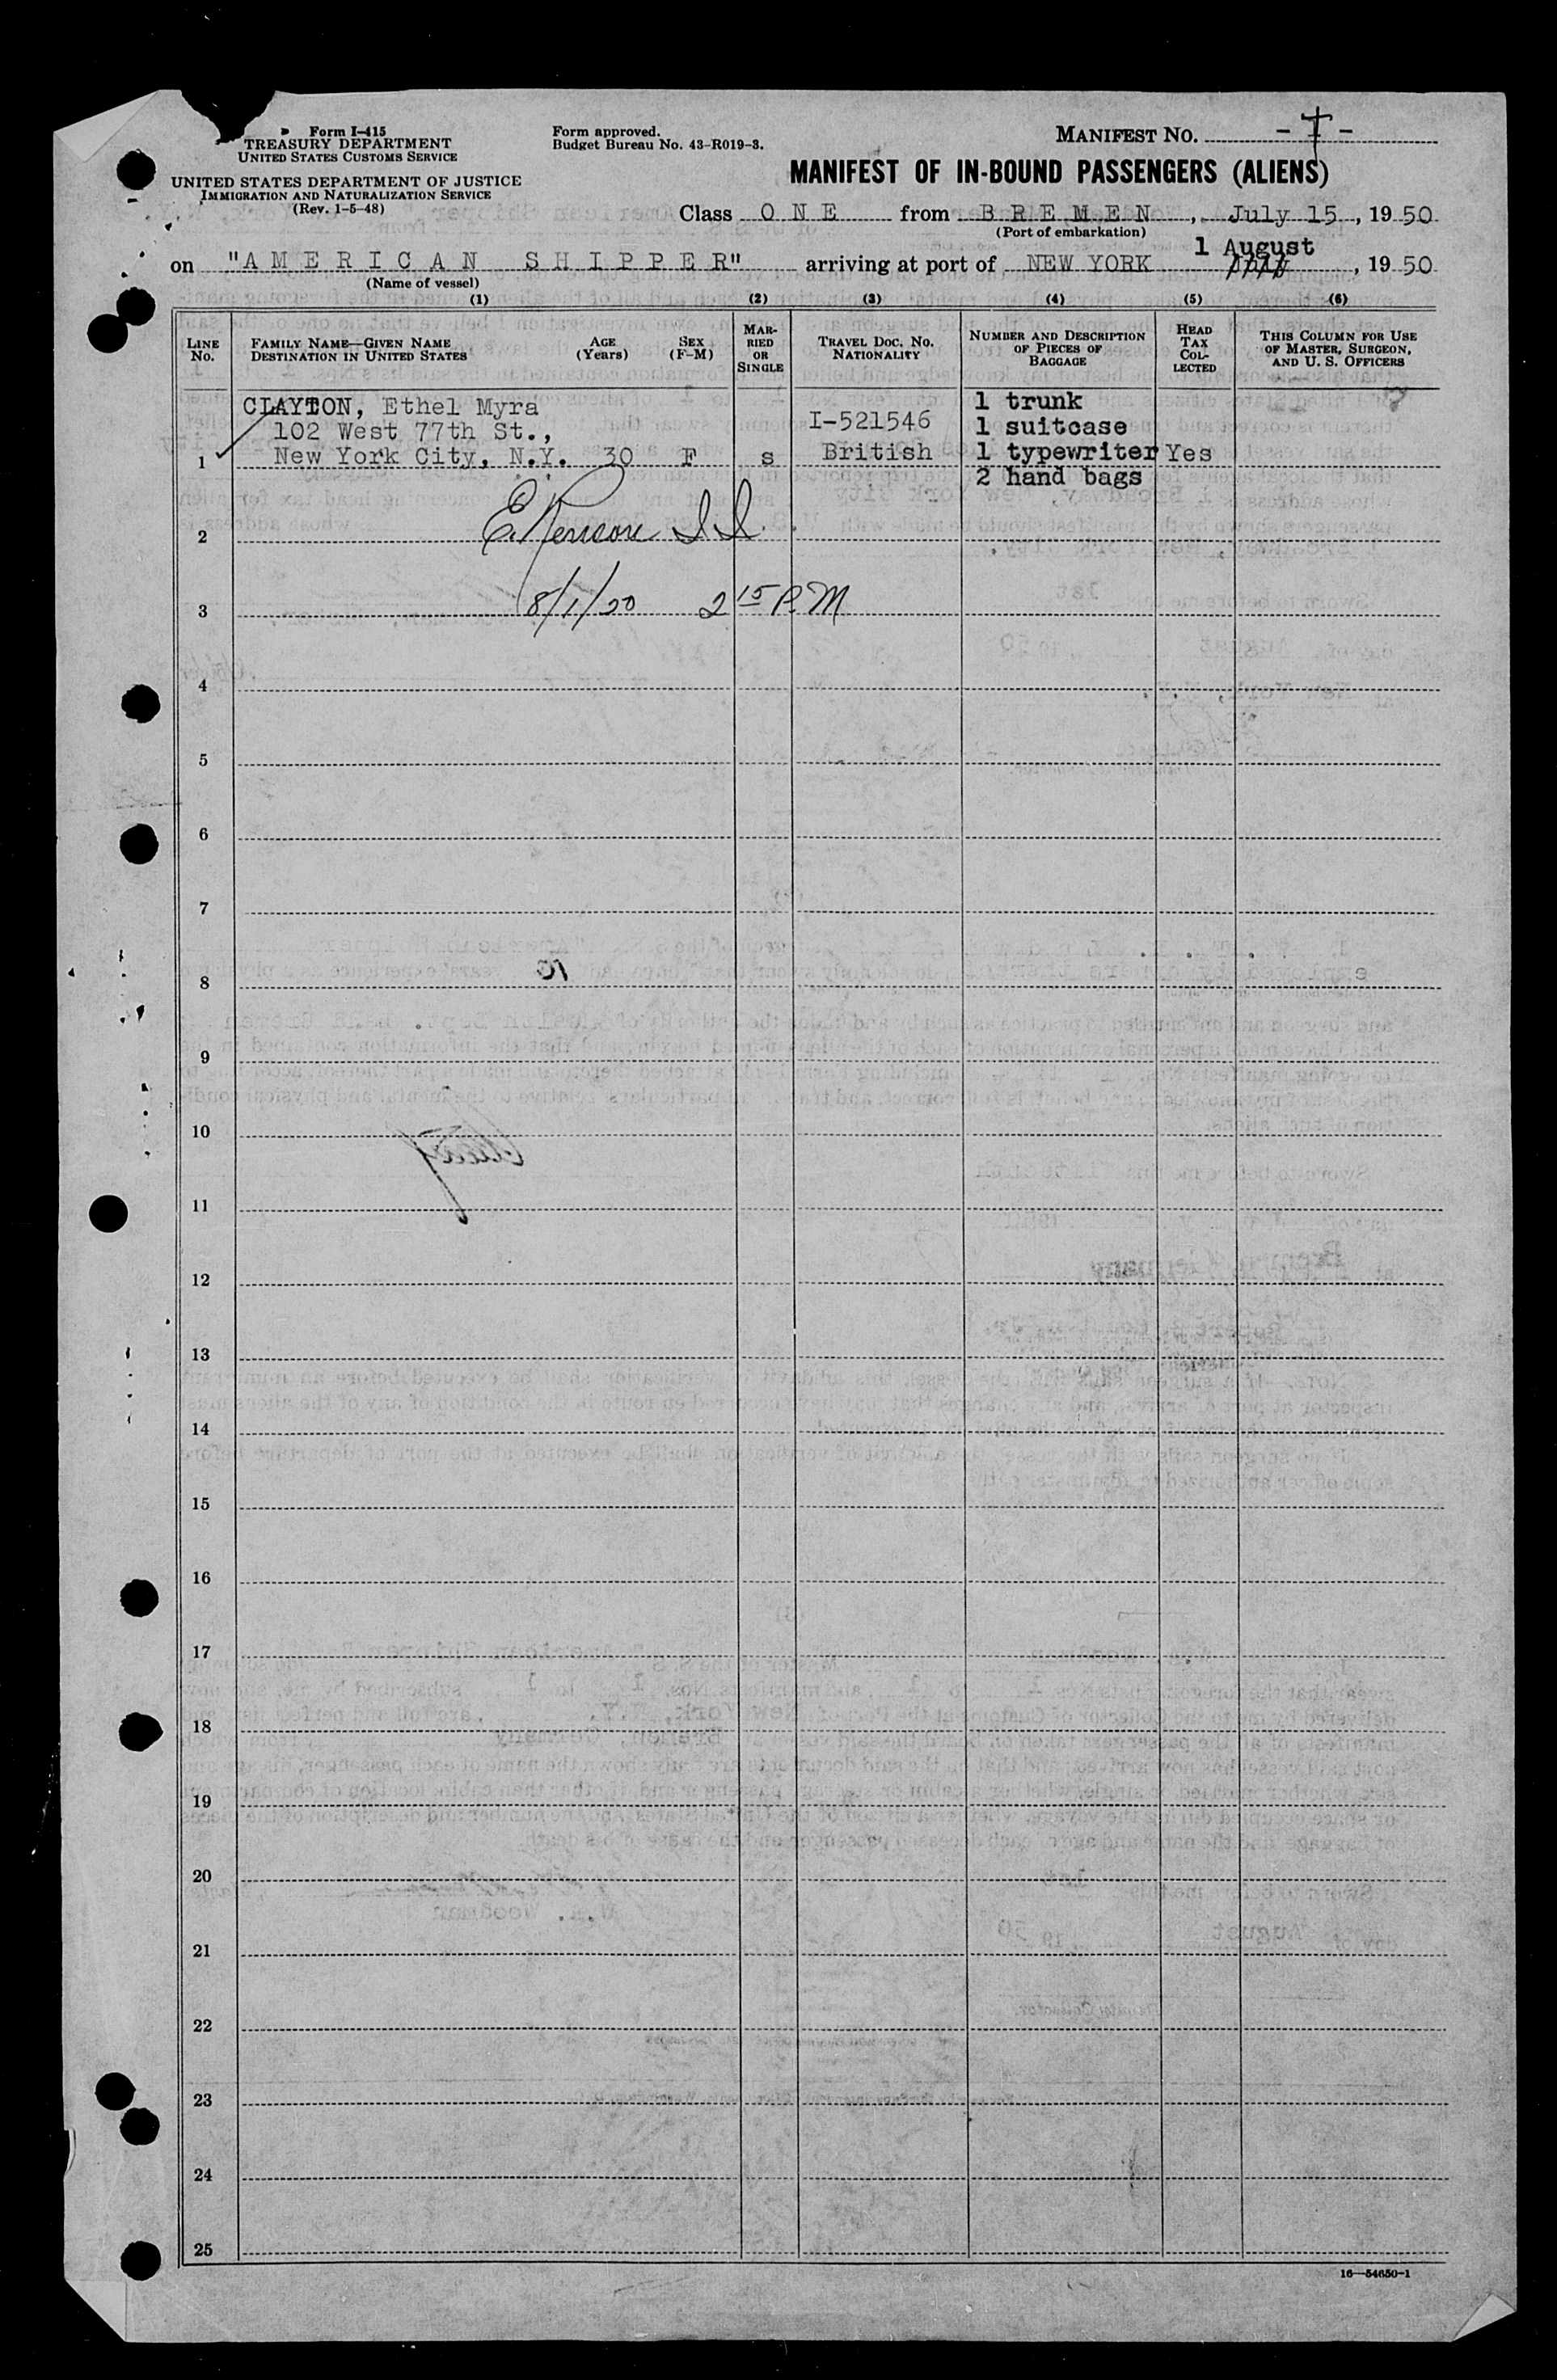 Form I-415
TREASURY DEPARTMENT
UNITED STATES CUSTOMS SERVICE
UNITED STATES DEPARTMENT OF JUSTICE
IMMIGRATION AND NATURALIZATION SERVICE
(Rev. 1-5-48)
Form approved.
Budget Bureau No. 43-R019-3.
MANIFEST NO.
MANIFEST OF IN-BOUND PASSENGERS (ALIENS)
Class O N E from B R E M E N, July 15, 1950
(Port of embarkation)
1 August
on "A M E R I C A N S H I P P E R" arriving at port of NEW YORK, 1950
(Name of vessel)
(1) (2) (3) (4) (5) (6)
LINE No. FAMILY NAME—GIVEN NAME DESTINATION IN UNITED STATES AGE (Years) SEX (F-M) MARRIED OR SINGLE TRAVEL DOC. NO. NATIONALITY NUMBER AND DESCRIPTION OF PIECES OF BAGGAGE HEAD TAX COLLECTED THIS COLUMN FOR USE OF MASTER, SURGEON, AND U. S. OFFICERS
CLAYTON, Ethel Myra 1 trunk
102 West 77th St., I-521546 1 suitcase
1 New York City, N.Y. 30 F s British 1 typewriter Yes
2 hand bags
2
3 8/1/50 2 15 P.M
4
5
6
7
8
9
10
11
12
13
14
15
16
17
18
19
20
21
22
23
24
25
16—54650-1